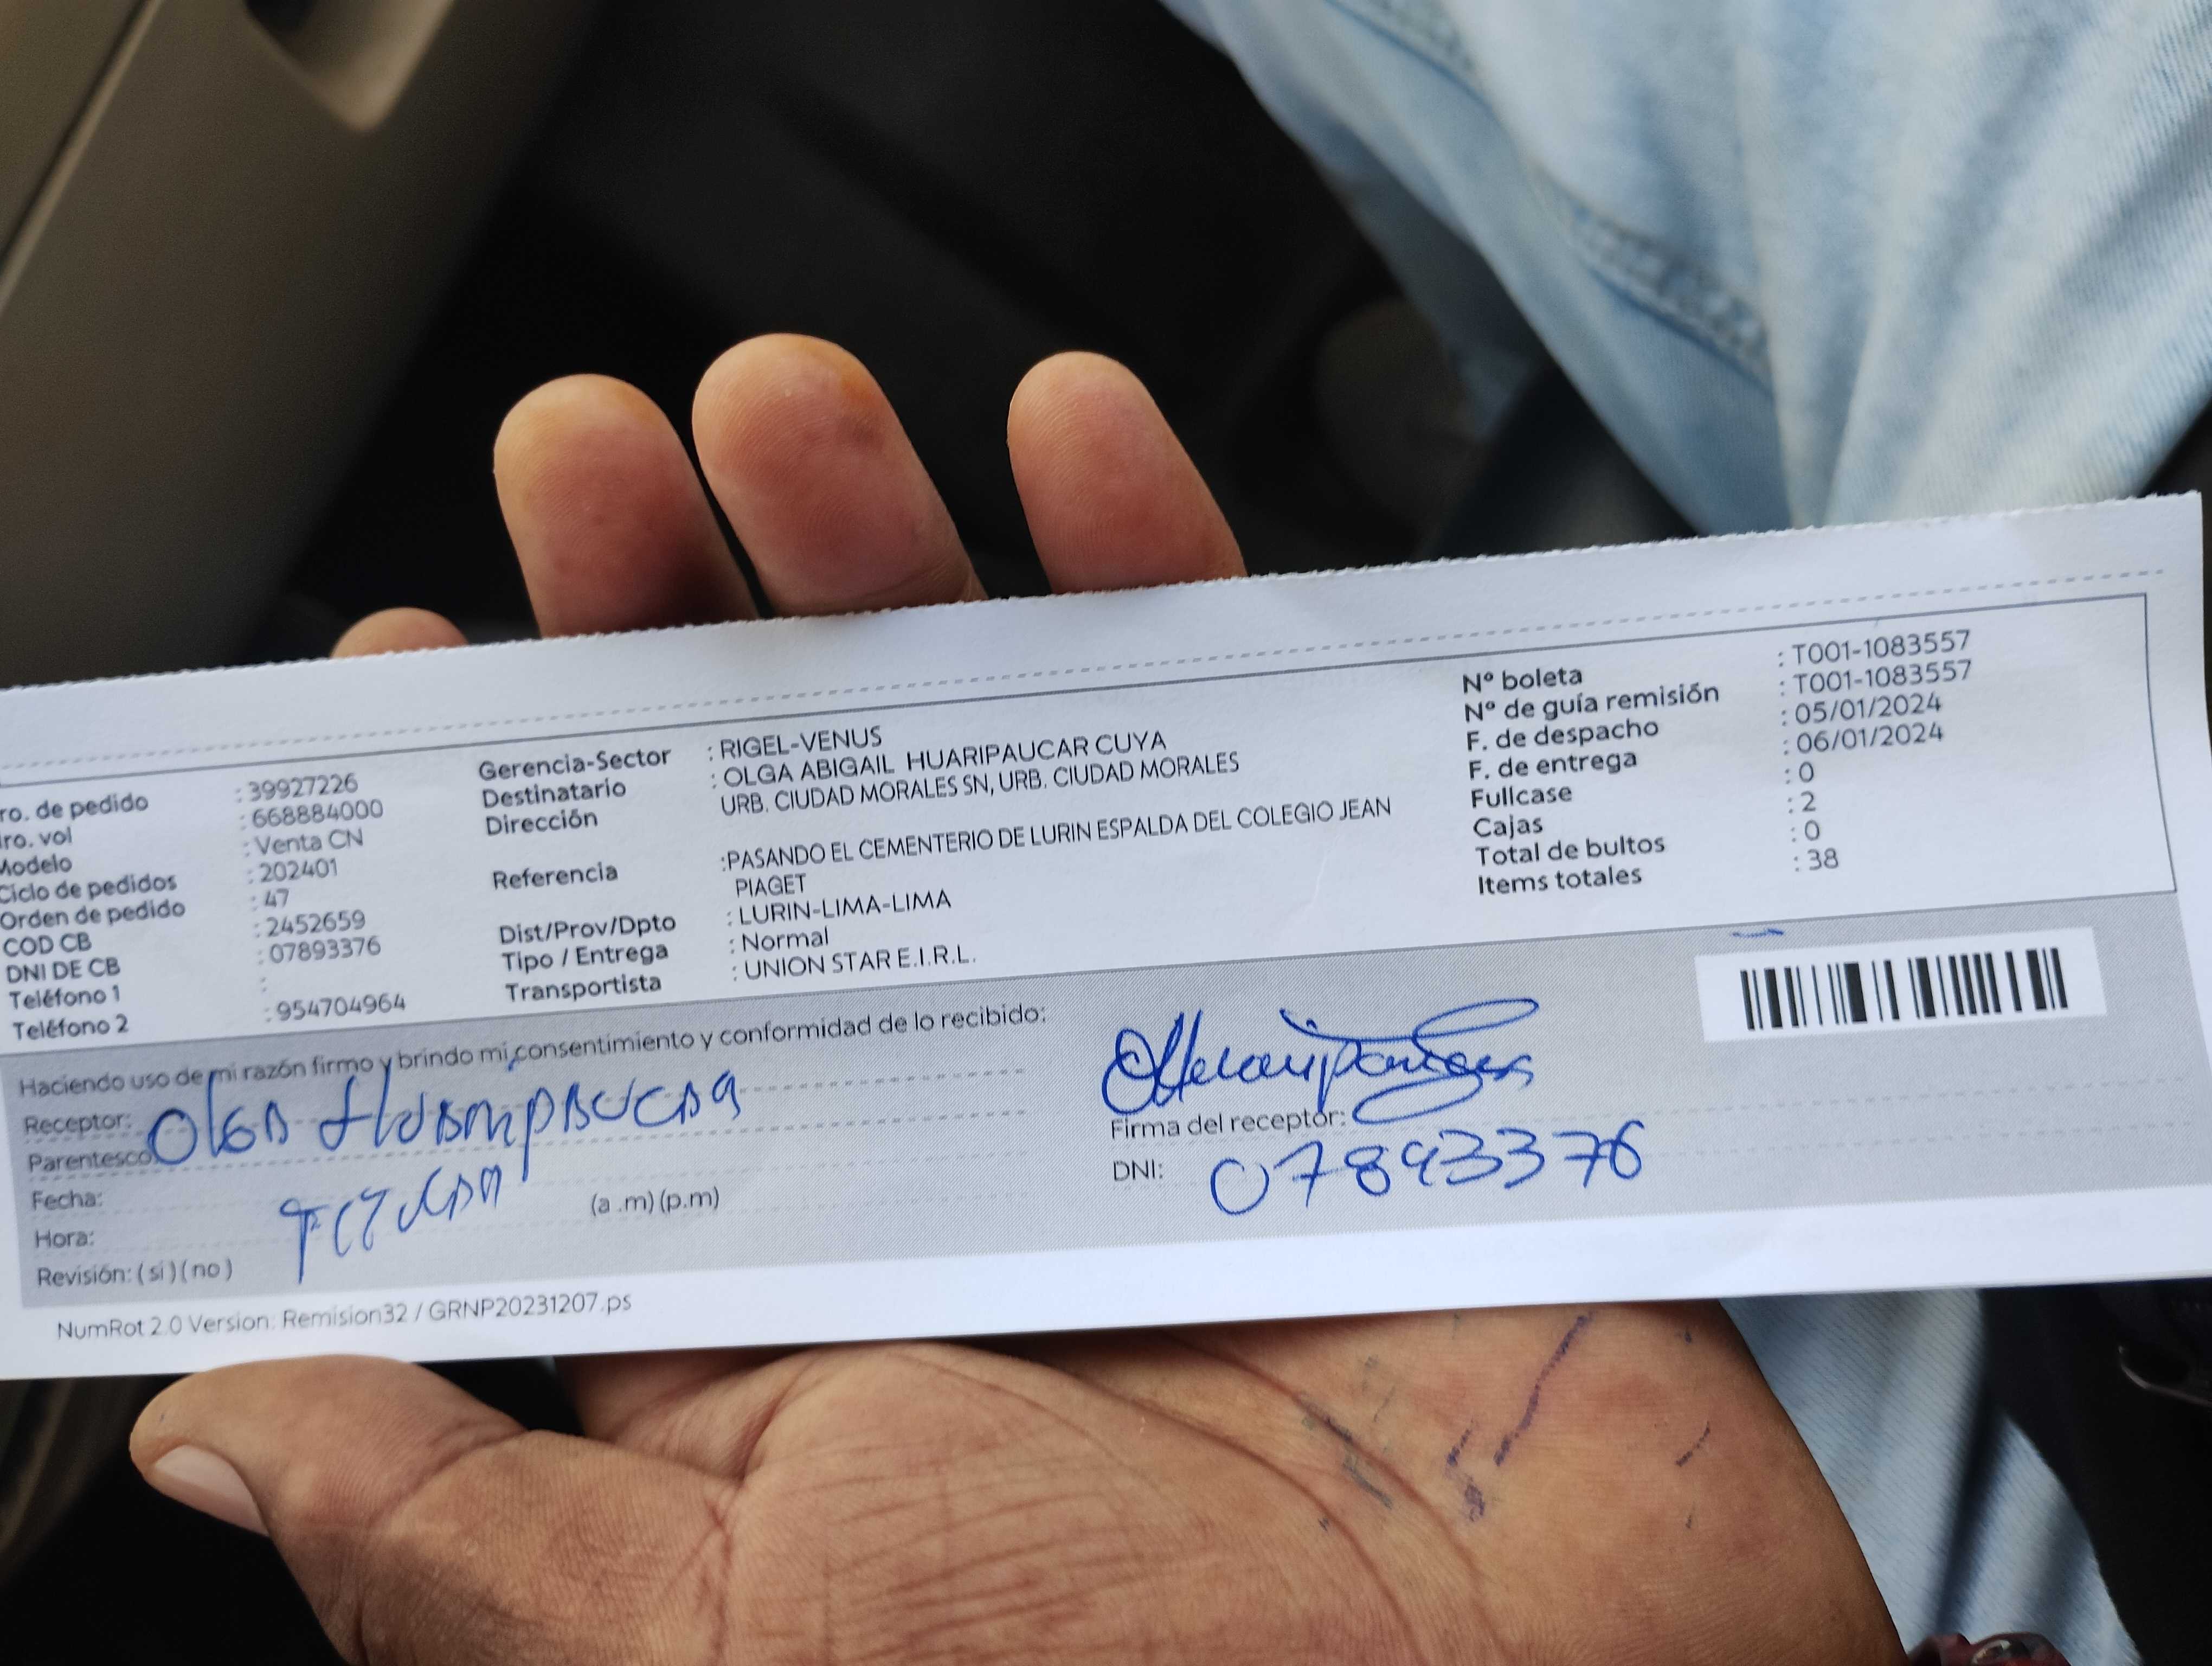 ro. de pedido : 39927226
ro. vol : 668884000
Modelo : Venta CN
Ciclo de pedidos : 202401
Orden de pedido : 47
COD CB : 2452659
DNI DE CB : 07893376
Teléfono 1 :
Teléfono 2 : 954704964
Gerencia-Sector : RIGEL-VENUS
Destinatario : OLGA ABIGAIL HUARIPAUCAR CUYA
Dirección URB. CIUDAD MORALES SN, URB. CIUDAD MORALES
Referencia :PASANDO EL CEMENTERIO DE LURIN ESPALDA DEL COLEGIO JEAN
PIAGET
Dist/Prov/Dpto : LURIN-LIMA-LIMA
Tipo / Entrega : Normal
Transportista : UNION STAR E.I.R.L.
Nº boleta : T001-1083557
Nº de guía remisión : T001-1083557
F. de despacho : 05/01/2024
F. de entrega : 06/01/2024
Fullcase : 0
Cajas : 2
Total de bultos : 0
Items totales : 38
Haciendo uso de mi razón firmo y brindo mi consentimiento y conformidad de lo recibido:
Receptor: Olga Huaripaucar
Parentesco:
Fecha: Titular
Hora: (a .m) (p.m)
Revisión: ( si ) ( no )
Firma del receptor:
DNI: 07893376
NumRot 2.0 Version: Remision32 / GRNP20231207.ps